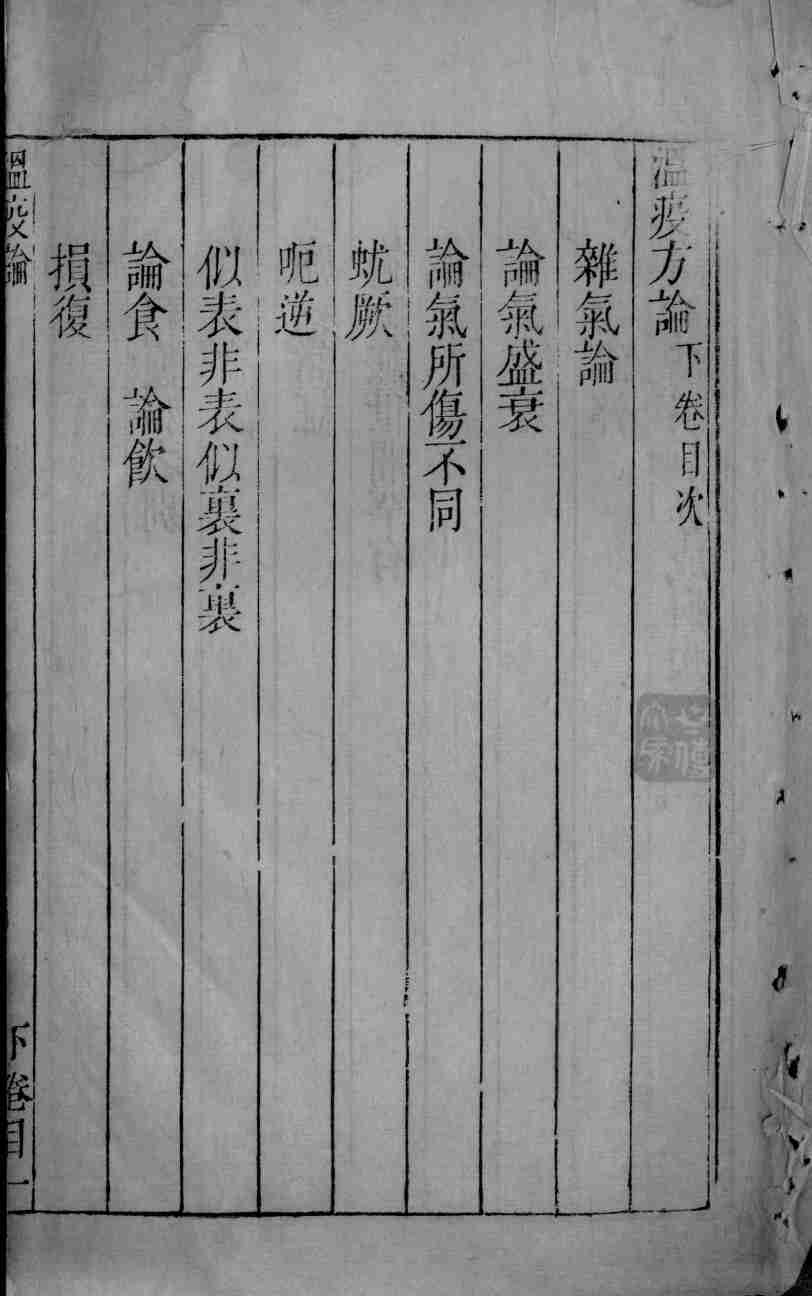 溫疫方論下卷目次
雜氣論
論氣盛衰
論氣所傷不同
蚘厥
呃逆
似表非表似裏非裏
論食　論飲
損復
溫疫論　下卷目一